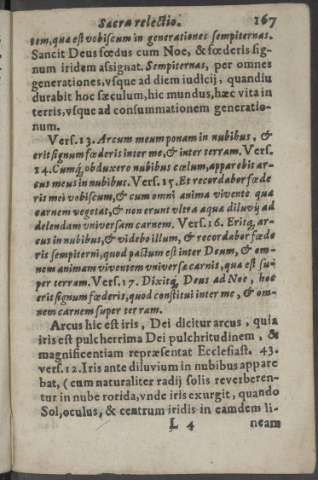 Sacra relectio. 167
tem, quæ est vobiscum in generationes sempiternas.
Sancit Deus fœdus cum Noe, & fœderis sig-
num iridem assignat. Sempiternas, per omnes
generationes, vsque ad diem iudicij, quandiu
durabit hoc sæculum, hic mundus, hæc vita in
terris, vsque ad consummationem generatio-
num.
Vers. 13. Arcum meum ponam in nubibus, &
erit signum fœderis inter me, & inter terram. Vers.
14. Cumq́, obduxero nubibus cœlum, apparebit ar-
cus meus in nubibus. Vers. 15. Et recordabor fœde
ris mei vobiscum, & cum omni anima vivente quæ
carnem vegetat, & non erunt vltra aquæ diluvij ad
delendam vniversam carnem. Vers. 16. Eritq́, ar-
cus in nubibus, & videbo illum, & recordabor fœde
ris sempiterni, quod pactum est inter Deum, & om-
nem animam viventem vniversæ carnis, quæ est su-
per terram. Vers. 17. Dixitq́, Deus ad Noe, hoc
erit signum fœderis, quod constitui inter me, & om-
nem carnem super terram.
Arcus hic est iris, Dei dicitur arcus, quia
iris est pulcherrima Dei pulchritudinem, &
magnificentiam repræsentat Ecclesiast. 43.
vers. 12. Iris ante diluvium in nubibus appare
bat, (cum naturaliter radij solis reverberen-
tur in nube rorida, vnde iris exurgit, quando
Sol, oculus, & centrum iridis in eamdem li-
L 4 neam